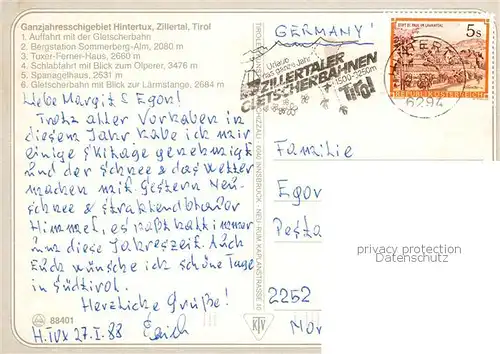 Ganzjahresschigebiet Hintertux, Zillertal, Tirol
1. Auffahrt mit der Gletscherbahn
2. Bergstation Sommerberg-Alm, 2080 m
3. Tuxer-Ferner-Haus, 2660 m
4. Schlabfahrt mit Blick zum Olperer, 3476 m
5. Spanagelhaus, 2531 m
6. Gletscherbahn mit Blick zur Lärmstange, 2684 m
Liebe Margit & Egon!
Trotz aller Vorhaben in
diesem Jahr habe ich mir
einige Skitage genehmigt
und der Schnee & das Wetter
machen mit. Gestern Neu-
schnee & strahlendblauer
Himmel, es paßt halt immer
um diese Jahreszeit. Auch
Euch wünsche ich schöne Tage
in Südtirol.
Herzliche Grüße!
H.TUX 27.I.88 Erich
88401
KJV
6040 INNSBRUCK - NEU-RUM KAPLANSTRASSE
GERMANY!
Urlaub
das ganze Jahr
ZILLERTALER
GLETSCHERBAHNEN
1500-3250m
Tirol
5 S
REPUBLIK ÖSTERREICH
6294
Familie
Egon
2252
privacy protection
Datenschutz